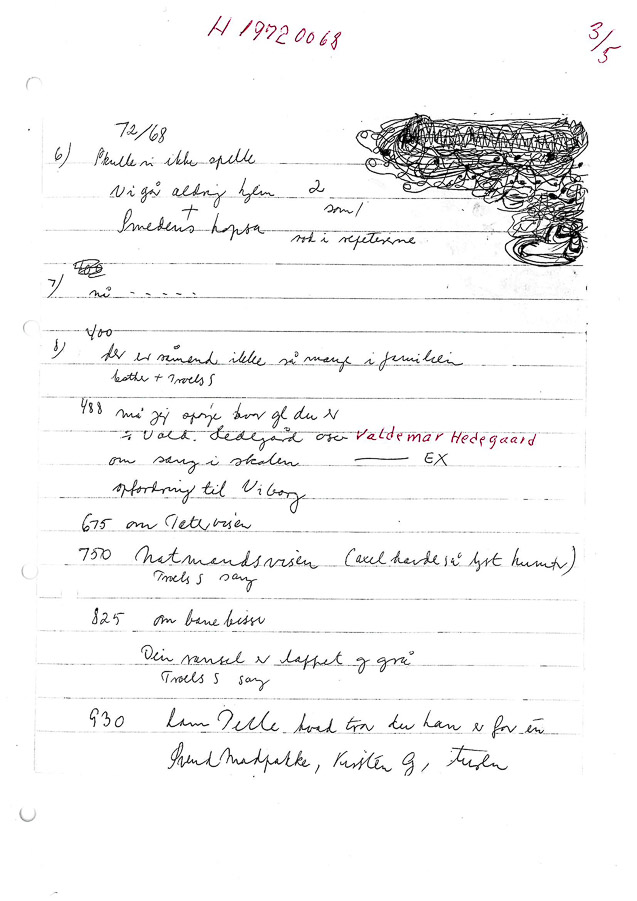 H 19720068
3/5
72/68
6) Skulle vi ikke spille
Vi gå aldrig hjem 2
+ som
Smedens hopsa
nok i repeterne
400
7) nå - - - - -
400
8) der er såmend ikke så mange i familien
+ Troels S
488 må jeg spørge hvor gl du er
Vald. Hedegård Valdemar Hedegaard
om sang i skolen —— EX
opfordring til Viborg
675 om Tatervisen
750 Natmandsvisen (axel havde så lyst humør)
Troels S sang
825 om banebisse
Din ransel er lappet og grå
Troels S sang
930 ham Pelle hvad tror du han er for én
Svend Madpakke, Kirstén G,